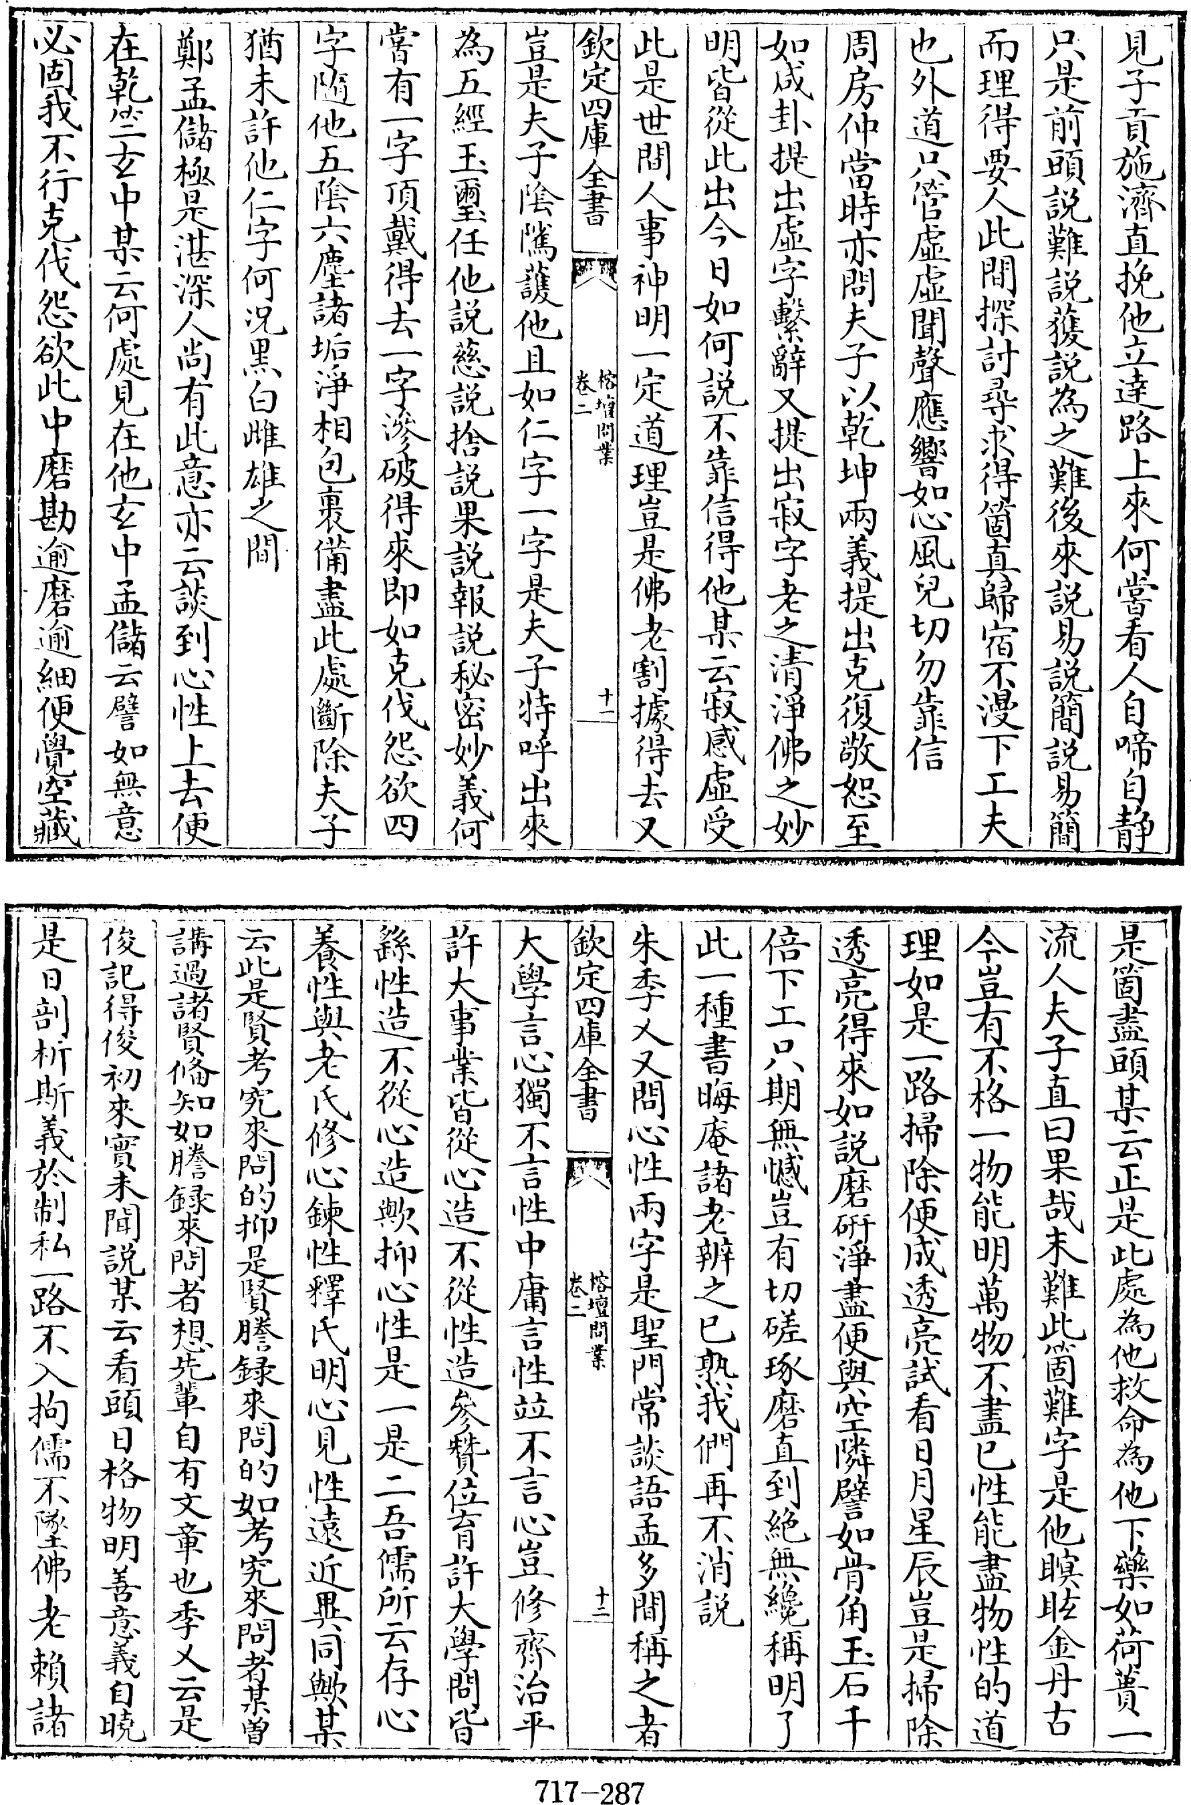 見子貢施濟直挽他立達路上來何嘗看人自啼自靜
只是前頭説難説獲説為之難後來説易説簡説易簡
而理得要人此間探討尋求得箇真歸宿不漫下工夫
也外道只管虛虛聞聲應響如心風兒切勿靠信
周房仲當時亦問夫子以乾坤兩義提出克復敬恕至
如咸卦提出虛字繫辭又提出寂字老之清淨佛之妙
明皆從此出今日如何説不靠信得他某云寂感虛受
此是世間人事神明一定道理豈是佛老割據得去又
欽定四庫全書
榕壇問業
卷二
十一
豈是夫子陰隲䕶他且如仁字一字是夫子特呼出來
為五經玉璽任他説慈説捨説果説報説秘密妙義何
嘗有一字頂戴得去一字滲破得來即如克伐怨欲四
字隨他五陰六塵諸垢淨相包裹備盡此處斷除夫子
猶未許他仁字何况黒白雌雄之間
鄭孟儲極是湛深人尚有此意亦云談到心性上去便
在乾竺玄中某云何處見在他玄中孟儲云譬如無意
必固我不行克伐怨欲此中磨勘逾磨逾細便覺空藏
是箇盡頭某云正是此處為他救命為他下藥如荷蕢一
流人夫子直曰果哉末難此箇難字是他瞑眩金丹古
今豈有不格一物能明萬物不盡已性能盡物性的道
理如是一路掃除便成透亮試看日月星辰豈是掃除
透亮得來如説磨硏淨盡便與空隣譬如骨角玉石千
倍下工只期無憾豈有切磋琢磨直到絶無纔稱明了
此一種書晦庵諸老辨之已熟我們再不消説
朱季乂又問心性兩字是聖門常談語孟多間稱之者
欽定四庫全書
榕壇問業
卷二
十二
大學言心獨不言性中庸言性並不言心豈修齊治平
許大事業皆從心造不從性造參贊位育許大學問皆
繇性造不從心造歟抑心性是一是二吾儒所云存心
養性與老氏修心鍊性釋氏明心見性遠近異同歟某
云此是賢考究來問的抑是賢謄録來問的如考究來問者某曽
講過諸賢俻知如謄録來問者想先輩自有文章也季乂云是
俊記得俊初來實未聞説某云看頭日格物明善意義自曉
是日剖析斯義於制私一路不入拘儒不墜佛老賴諸
717-287